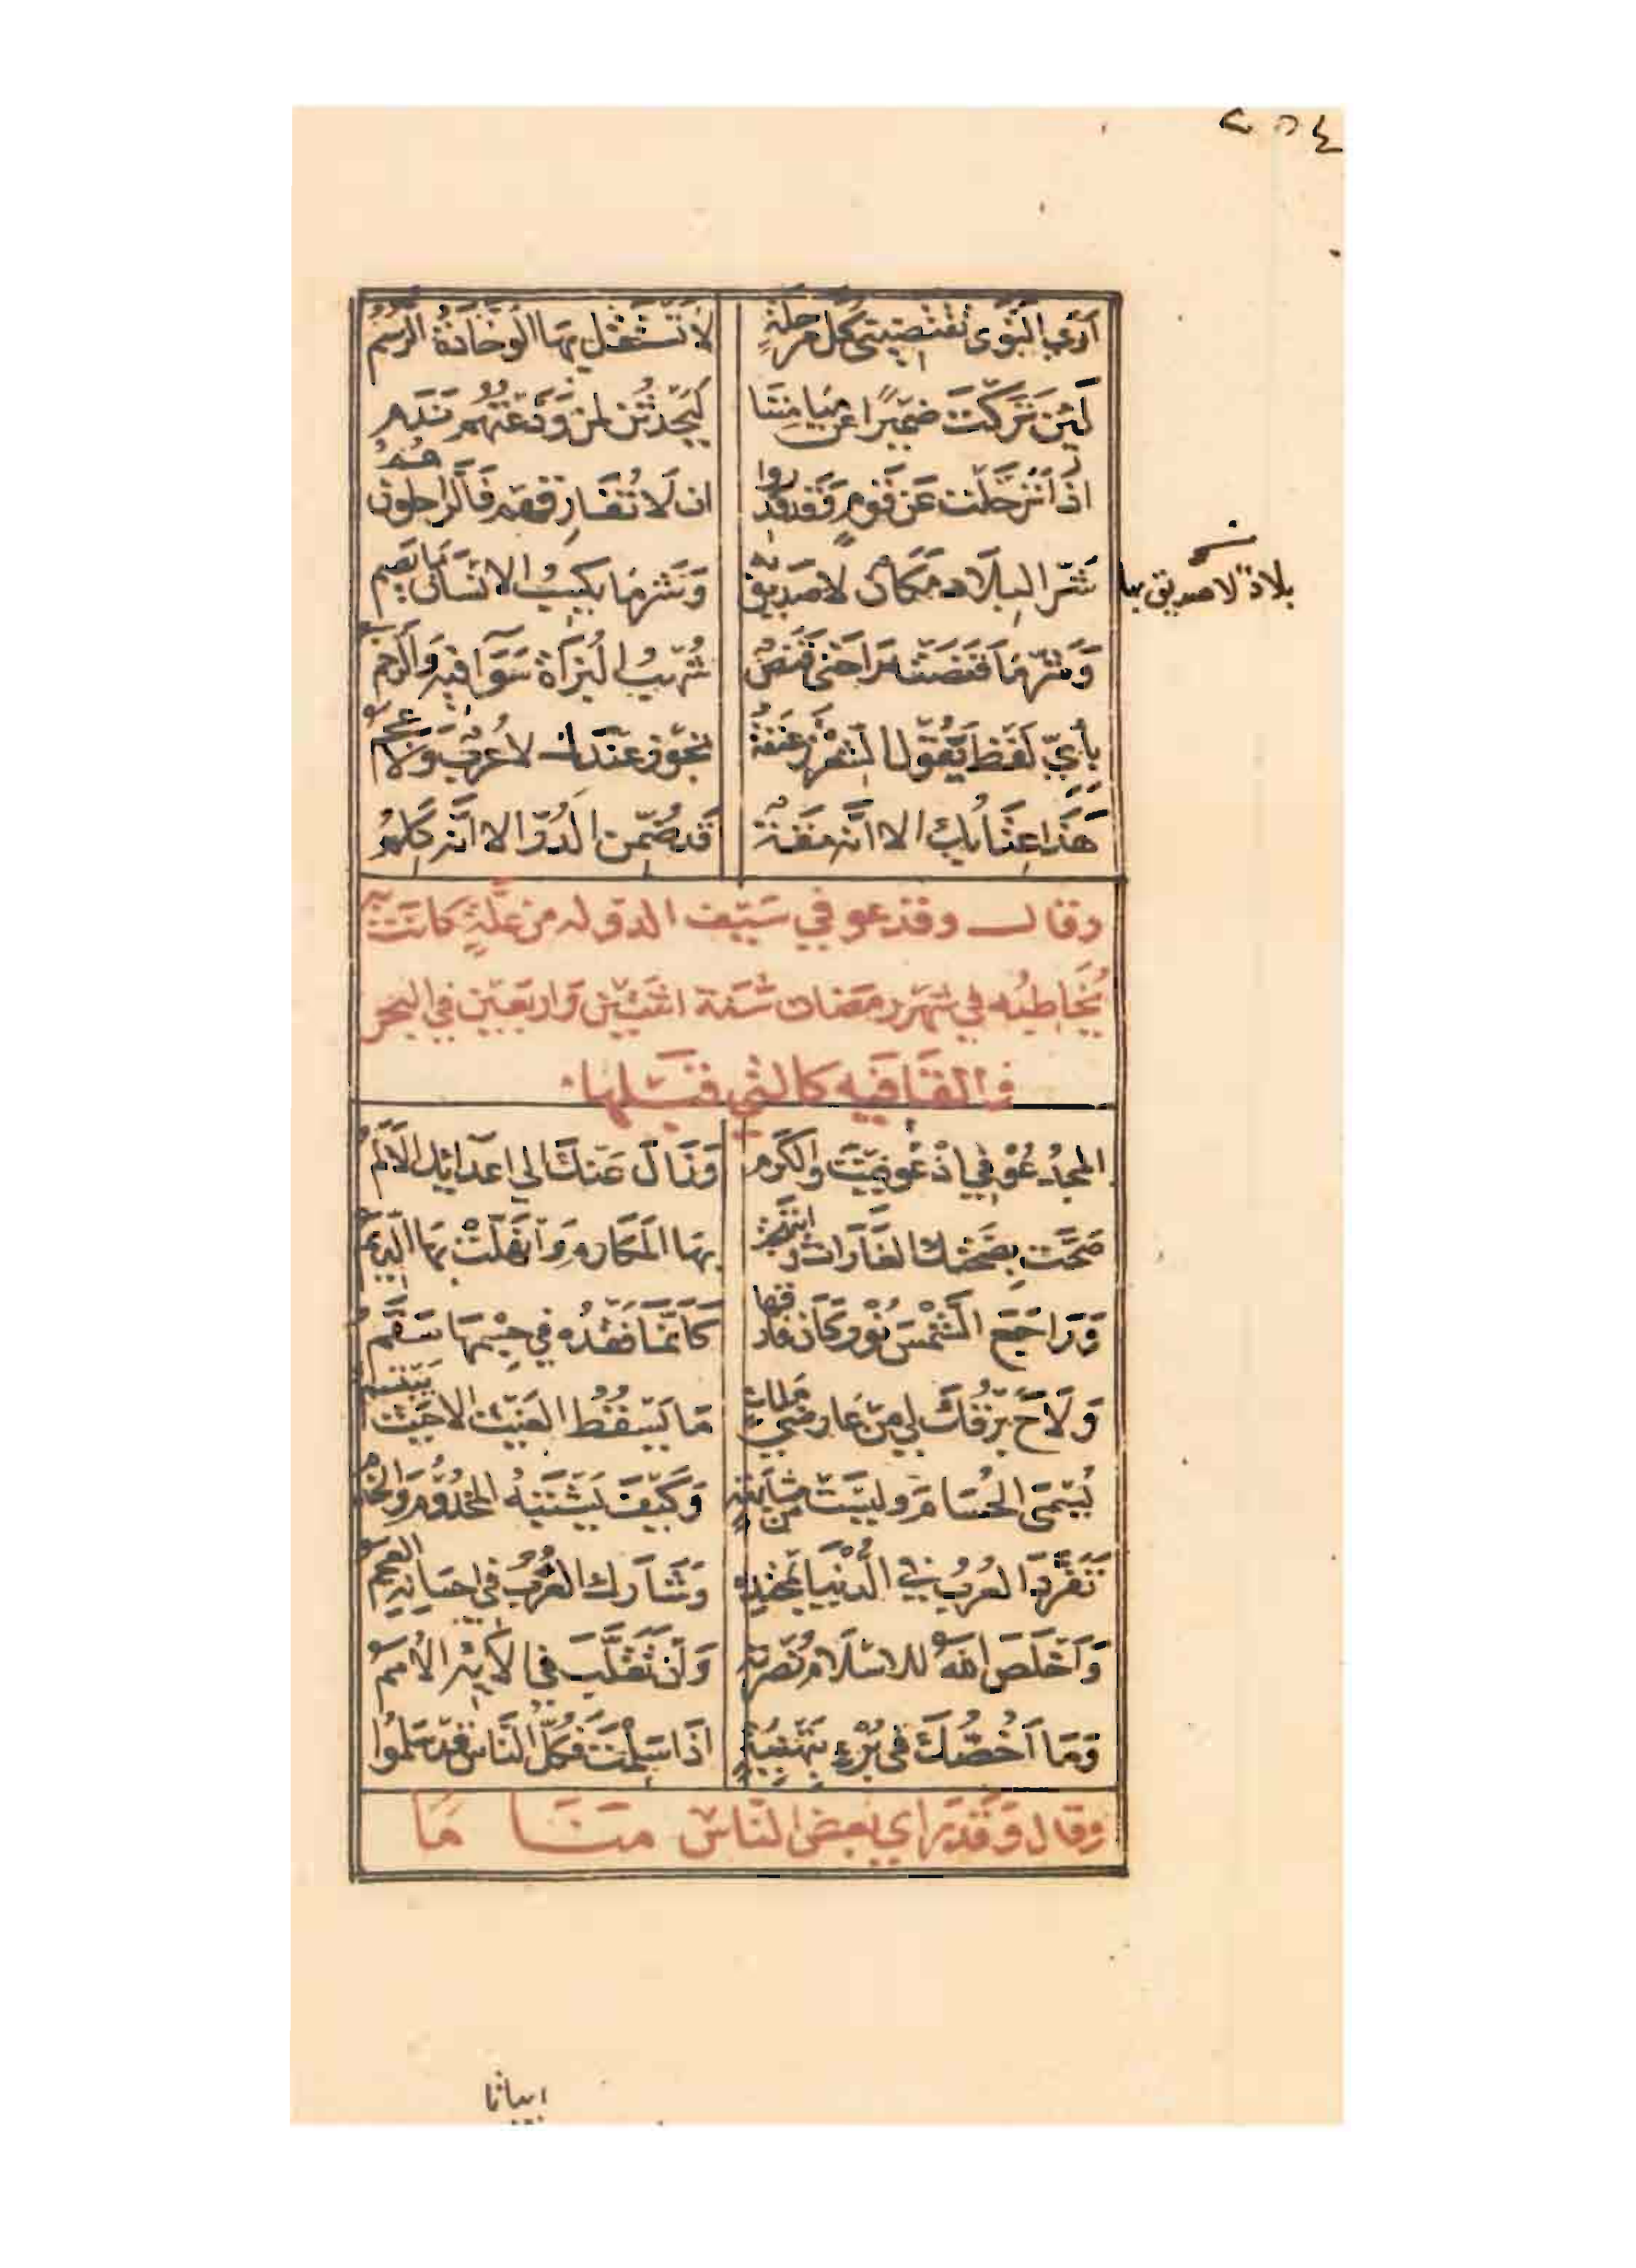 ٢٥٤
أرَى النَّوَى تَقْتَضِيني كُلَّ مَرْحَلَةٍ لَا تَسْتَقِلُّ بِهَا الوَخَّادَةُ الرُّسُمُ
لَئِنْ تَرَكْتَ ضُمَيْرًا عَنْ مَيَامِنِنَا لَيَحْدُثَنَّ لمَنْ وَدَّعْتُهُمْ نَدَم
اذَا تَرَحَّلْتَ عَنْ قَوْمٍ وَقَد قَدَروا ان لَا تُفَارِقَهم فَالرَّاحِلُونَ هُمُ
شَرُّ البِلَاد مَكَانٌ لا صَدِيقَ بِهِ وَشَرُّ مَا يَكسِبُ الانسَانُ مَا يَصِمُ
بلادٌ لا صديق بها
وَشَرُّ مَا قَنَصَتْهُ رَاحَتي قَنَصٌ شُهْبُ البُزَاةِ سَوَآء فِيهِ وَالرَّخَمُ
بِأَيِّ لَفْظٍ يَقُولُ الشِّعْرَ زَعْنَفَةٌ تَجُوزُ عِنْدَكَ لا عُرْبٌ وَلَا عَجَمُ
هَذَا عِتَابُكَ الا انَّه مِقَةٌ قَد ضُمِّنَ الدُّرَّ الا انَّه كَلِمُ
وقال وقد عوفي سَيْف الدوله من عِلَّةٍ كَانَتْ بِهِ
يُخَاطِبُه في شَهْر رمَضَان سَنَة اثنَتَيْن وَاربَعِين في البحر
والقَافِيه كالتي قبْلها
المجدُ عُوفِي اذْ عُوفِيتَ وَالكَرَمُ وَزَالَ عَنْكَ الى اعدَائِكَ الأَلَمُ
صَحَّتْ بِصِحَّتِكَ الغَارَاتُ وَابْتَهَجَتْ بِهَا المَكَارِمُ وَانْهَلَّتْ بِهَا الدِّيَمُ
وَرَاجَعَ الشَّمْسَ نُورٌ كَانَ فَارَقَهَا كَأنَّمَا فَقْدُه فِي جِسْمِهَا سَقَمُ
وَلَاحَ بَرْقُكَ لِي مِنْ عَارِضَيْ مَلِكٍ مَا يَسْقُطُ الغَيْثُ الا حَيْثُ يَبْتَسِمُ
يُسْمَى الحُسَامَ وليسَتْ مِن مُشَابَهَةٍ وَكَيْفَ يَشْتَبِهُ المَخْدُومُ وَالخَدَمُ
تَفَرَّدَ العُرْبُ في الدُّنْيَا بِمَحْتِدِهِ وَشَارَكَ العُرْبَ فِي احسَانِهِ العَجَمُ
وَأَخْلَصَ اللهُ للاسْلَامِ نُصْرَتَهُ وَإنْ تَقَلَّبَ فِي آلَائِهِ الأُمَمُ
وَمَا أَخُصُّكَ في بُرْءٍ بِتَهْنِئَةٍ اذَا سَلِمْتَ فَكُلُّ النَّاسِ قَد سَلِمُوا
وقال وَقَد رَاى بَعض النَّاس مَنَامًا
ابياتا